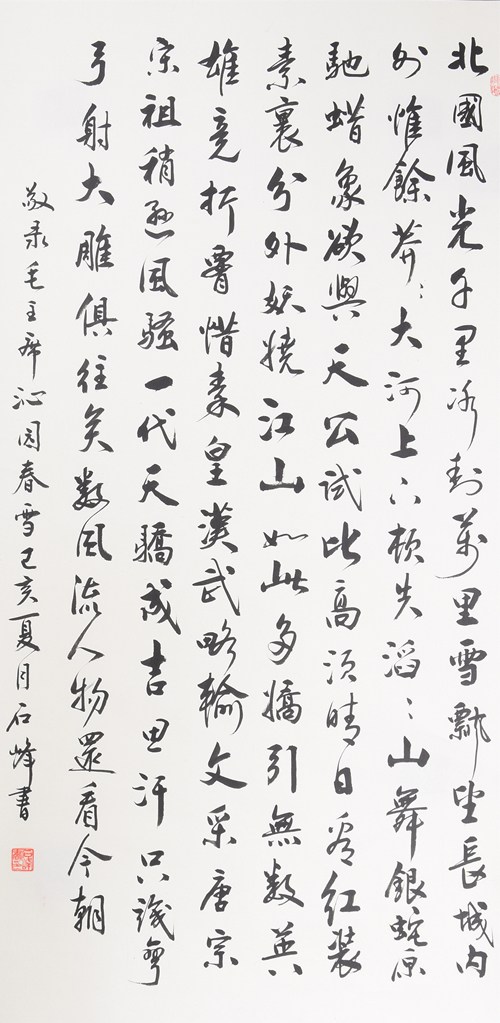 北國風光千里冰封萬里雪飄望長城内
外惟餘莽〻大河上下頓失滔〻山舞銀蛇原
馳蜡象欲與天公試比高須晴日看紅裝
素裹分外妖嬈江山如此多嬌引無數英
雄竞折腰惜秦皇漢武略輸文采唐宗
宋祖稍遜風騷一代天驕成吉思汗只識彎
弓射大雕俱往矣數風流人物還看今朝
敬录毛主席沁园春雪己亥夏月石峰書